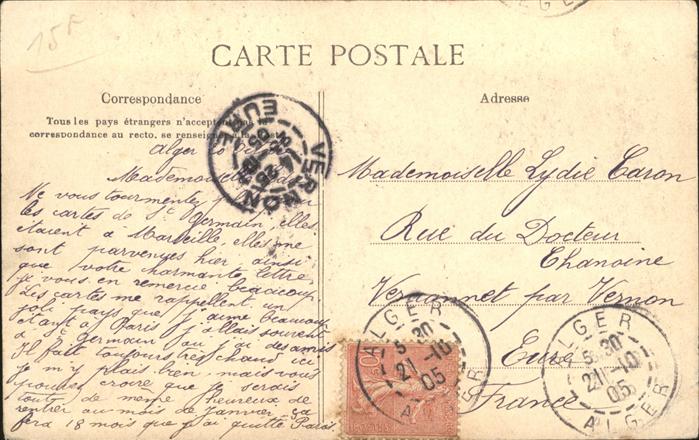 15F
CARTE POSTALE
Correspondance
Tous les pays étrangers n'acceptent pas la
correspondance au recto, se renseigner à la poste
Alger le
Mademoiselle
Ne vous tourmentez
les cartes de St Germain, elles
étaient à Marseille, elles me
sont parvenues hier ainsi
que votre charmante lettre,
je vous en remercie beaucoup.
Les cartes me rappellent un
joli pays que j'aime beaucoup
étant à Paris j'allais souvent
à St Germain où j'ai des amis
Il fait toujours très chaud ici
je m'y plais bien mais vous
pouvez croire que je serais
tout de même heureux de
rentrer au mois de Janvier, ça
fera 18 mois que j'ai quitté Paris
Adresse
Mademoiselle Lydie Caron
Rue du Docteur
Chanoine
Vernonnet par Vernon
Eure
France
VERNON
EURE
ALGER
5 30
21-10
05
ALGER
10
ALGER
5 30
21-10
05
ALGER